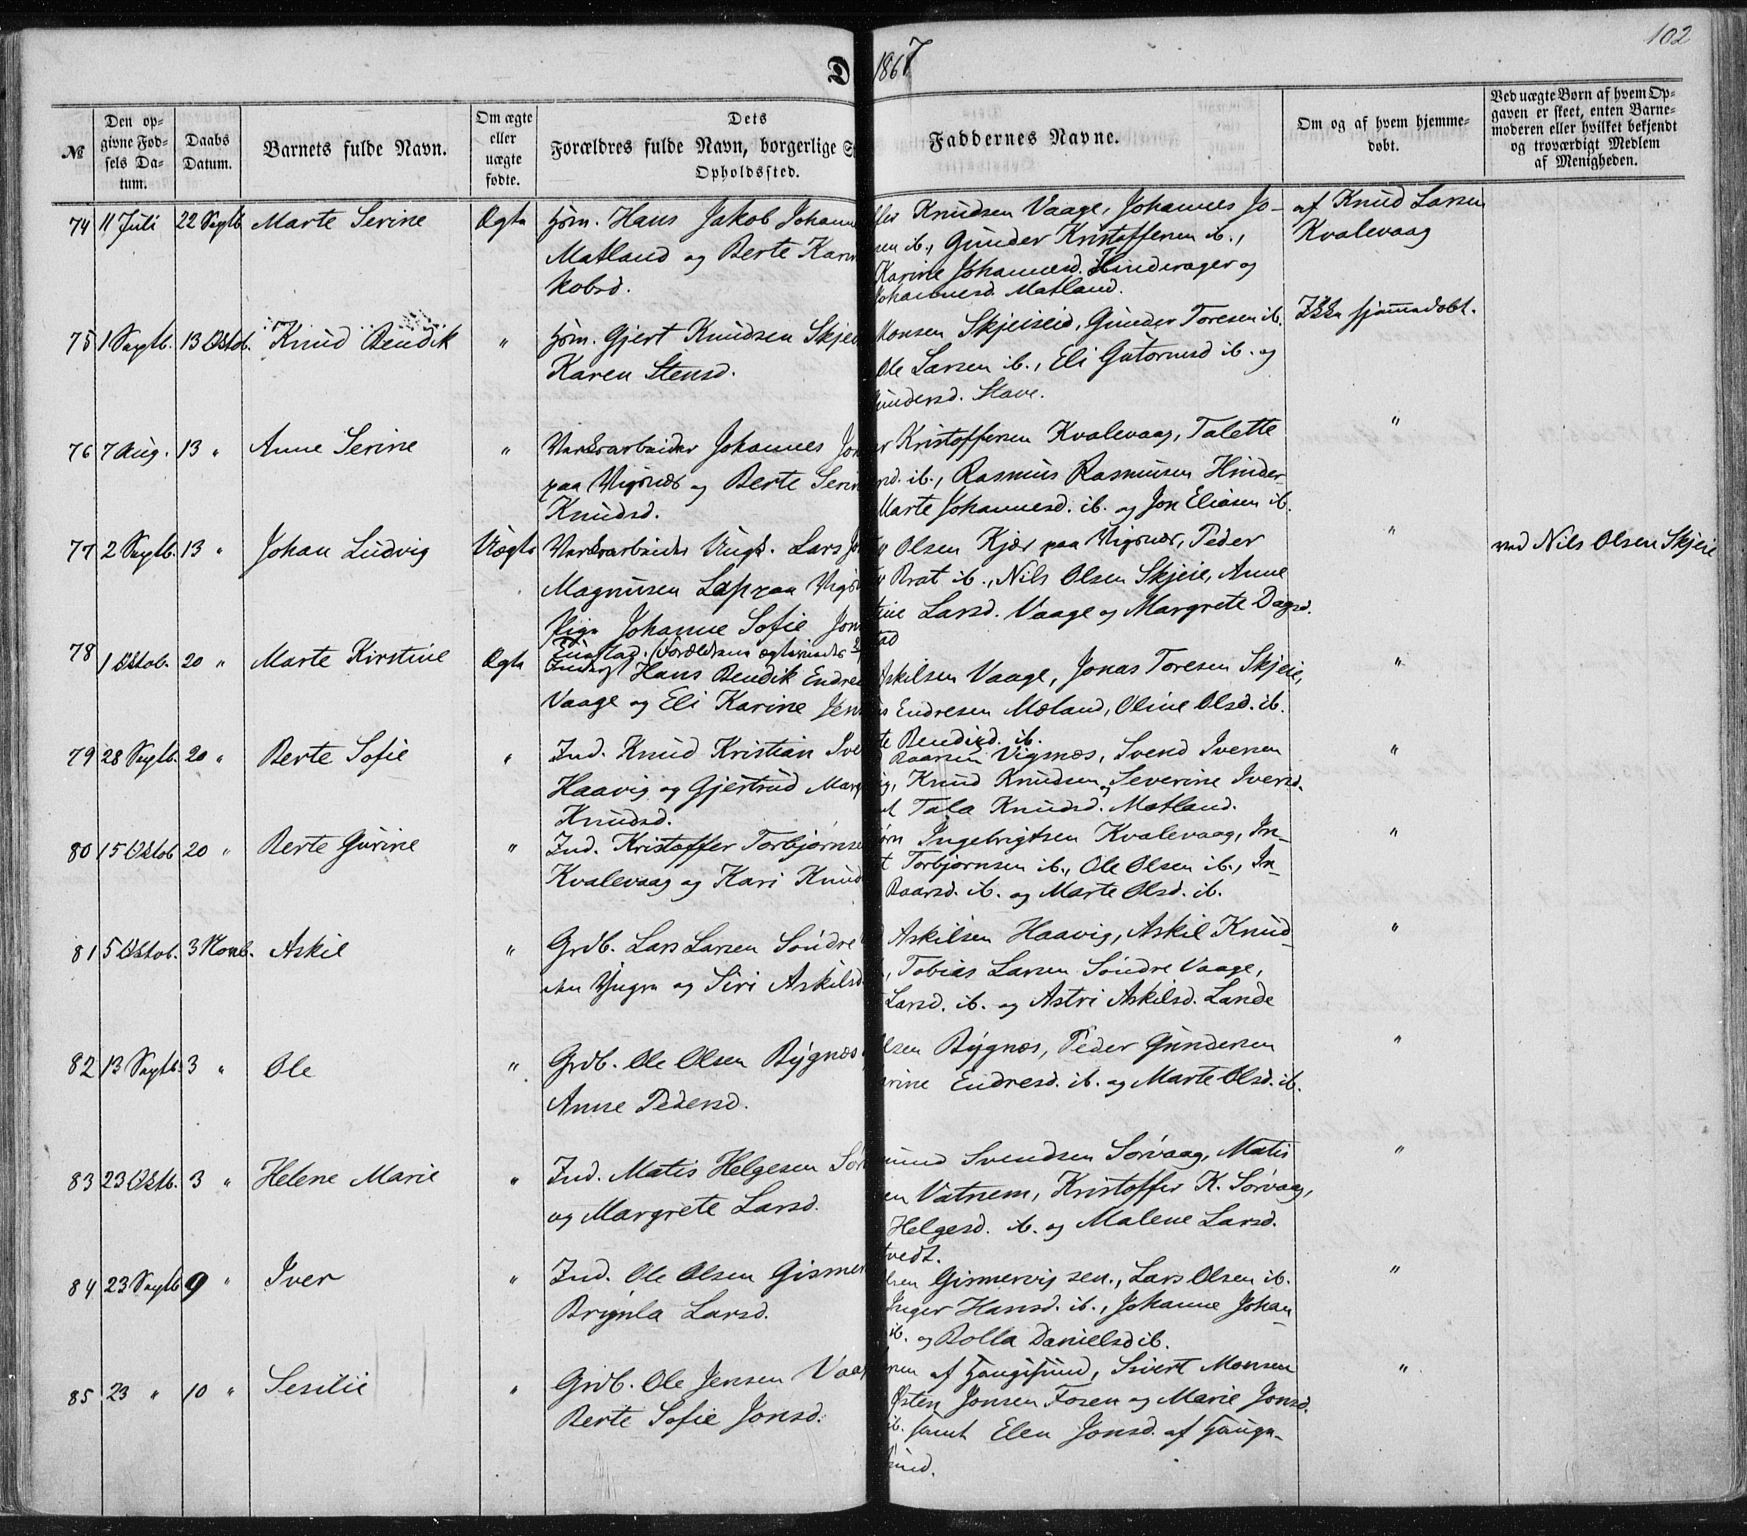 102
D 1867
№
Den op-
givne Fød-
sels Da-
tum.
Daabs
Datum.
Barnets fulde Navn.
Om ægte
eller
uægte
fødte.
Dets
Forældres fulde Navn, borgerlige S
Opholdssted.
Faddernes Navne.
Om og af hvem hjemme-
døbt.
Ved uægte Børn af hvem Op-
gaven er skeet, enten Barne-
moderen eller hvilket bekjendt
og troværdigt Medlem
af Menigheden.
74 11 Juli 22 Septb Marte Serine Ægte Hsm. Hans Jakob Johann
Matland og Berte Karin
kobsd.
Knudsen Vaage, Johannes Jo-
sen ib., Gunder Kristoffersen ib.,
Karine Johannesd. Hinderager og
Johannesd. Matland.
af Knud Larsen
Kvalevaag
75 1 Septb. 13 Octob. Knud Bendik " Hsm. Gjert Knudsen Skjei
Karen Stensd.
Monsen Skjeiseid, Gunder Toresen ib.
Ole Larsen ib., Eli Gutormsd ib. og
Gundersd. Stave.
Ikke hjemmedøbt.
76 7 Aug. 13 " Anne Serine " Værksarbeider Johannes Jo
paa Vigsnæs og Berte Serin
Knudsd.
Kristoffersen Kvalevaag, Talette
sd. ib., Rasmus Rasmusen Hinder
Marte Johannesd. ib. og Jon Eliasen ib.
"
77 2 Septb. 13 " Johan Ludvig Uægte Værksarbeider Ungk. Lars J
Magnusen Lap paa Vigs
Pige Johanne Sofie Jon
Olsen Kjær paa Vigsnæs, Peder
Brat ib., Nils Olsen Skjeie, Anne
tine Larsd. Vaage og Margrete Dagsd.
"
ved Nils Olsen Skjeie
78 1 Octob. 20 " Marte Kirstine Ægte
Hans Bendik Endre
Vaage og Eli Karine Jen
Askilsen Vaage, Jonas Toresen Skjeie,
Endresen Mæland, Oline Olsd. ib.
te Bendixd. ib.
"
79 28 Septb. 20 " Berte Sofie " Ind. Knud Kristian Ive
Haavig og Gjertrud Marg
Knudsd.
Baarsen Vigsnæs, Svend Iversen
ig, Knud Knudsen, Severine Iversd.
Tala Knudsd. Matland.
"
80 15 Octob 20 " Berte Gurine " Ind. Kristoffer Torbjørnse
Kvalevaag og Kari Knud
ørn Ingebrigtsen Kvalevaag, In-
t Torbjørnsen ib., Ole Olsen ib., In-
Baarsd. ib. og Marte Olsd. ib.
"
81 5 Octob. 3 Novb. Askil " Grdb. Lars Larsen Søndre
den Yngre og Siri Askilsd
Askilsen Haavig, Askil Knud-
, Tobias Larsen Søndre Vaage,
Larsd. ib. og Astri Askilsd. Lande
"
82 13 Septb. 3 " Ole " Grdb. Ole Olsen Bygnæs
Anne Pedersd.
lsen Bygnæs, Peder Gundersen
arine Endresd. ib. og Marte Olsd. ib.
"
83 23 Octb. 3 " Helene Marie " Ind. Matis Helgesen Sør
og Margrete Larsd.
mund Svendsen Sørvaag, Matis
en Vatnem, Kristoffer K. Sørvaag,
Helgesd. ib. og Malene Larsd.
tvedt.
"
84 23 Septb 9 " Iver " Ind. Ole Olsen Gismer
Brynla Larsd.
lsen Gismervig sen., Lars Olsen ib.
Inger Hansd. ib., Johanne Johan-
ib. og Bolla Danielsd ib.
"
85 23 " 10 " Sesilie " Grdb. Ole Jensen Vaa
Berte Sofie Jonsd.
sen af Haugesund, Sivert Monsen
Østen Jonsen Fosen og Marie Jonsd.
ib. samt Elen Jonsd. af Hauge-
sund.
"